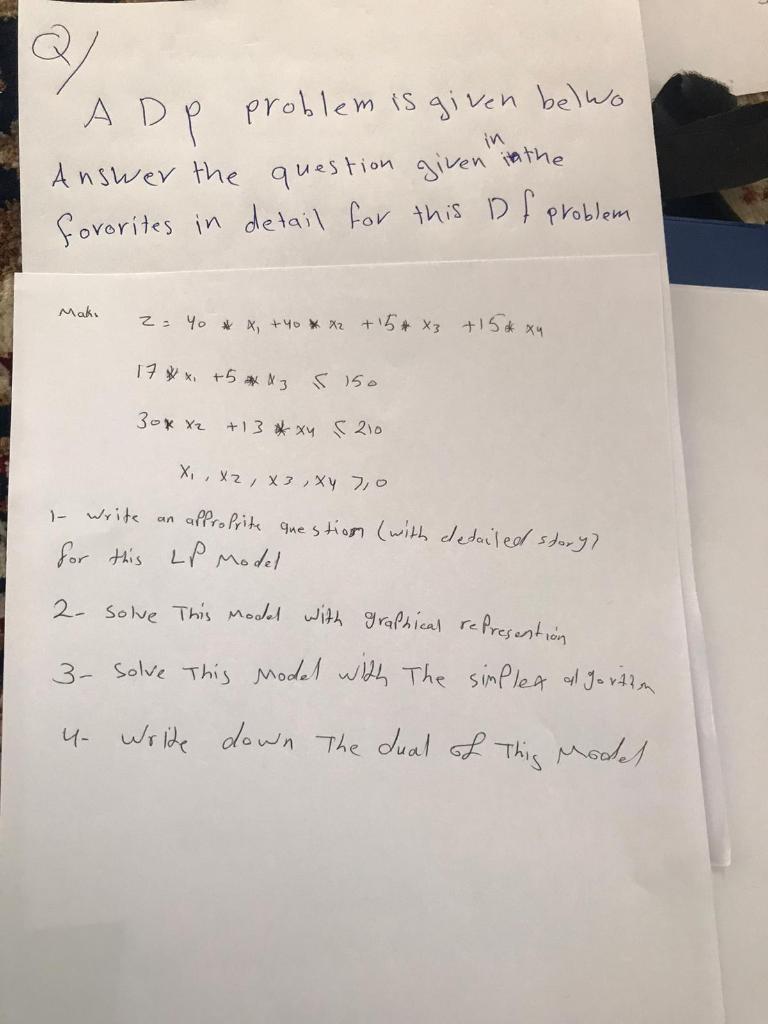 Q/
A DP problem is given belwo
Answer the question given in the
fovorites in detail for this Df problem
Z = 40 * x1 + 40 * x2 + 15 * x3 + 15 * x4
17 * x1 + 5 * x3 ≤ 150
30 * x2 + 13 * x4 ≤ 210
x1, x2, x3, x4 ≥ 0
1- Write an approprite question (with detailed story)
for this LP Model
2- Solve This Model with graphical represention
3- Solve This Model with The simplex algorithm
4- Write down The dual of This Model